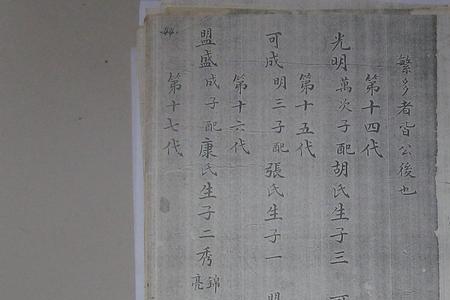 繁多者皆公後也
第十四代
光明 萬次子配胡氏生子三 可
第十五代
可成 明三子配張氏生子一 盟
第十六代
盟盛 成子配康氏生子二秀錦亮
第十七代